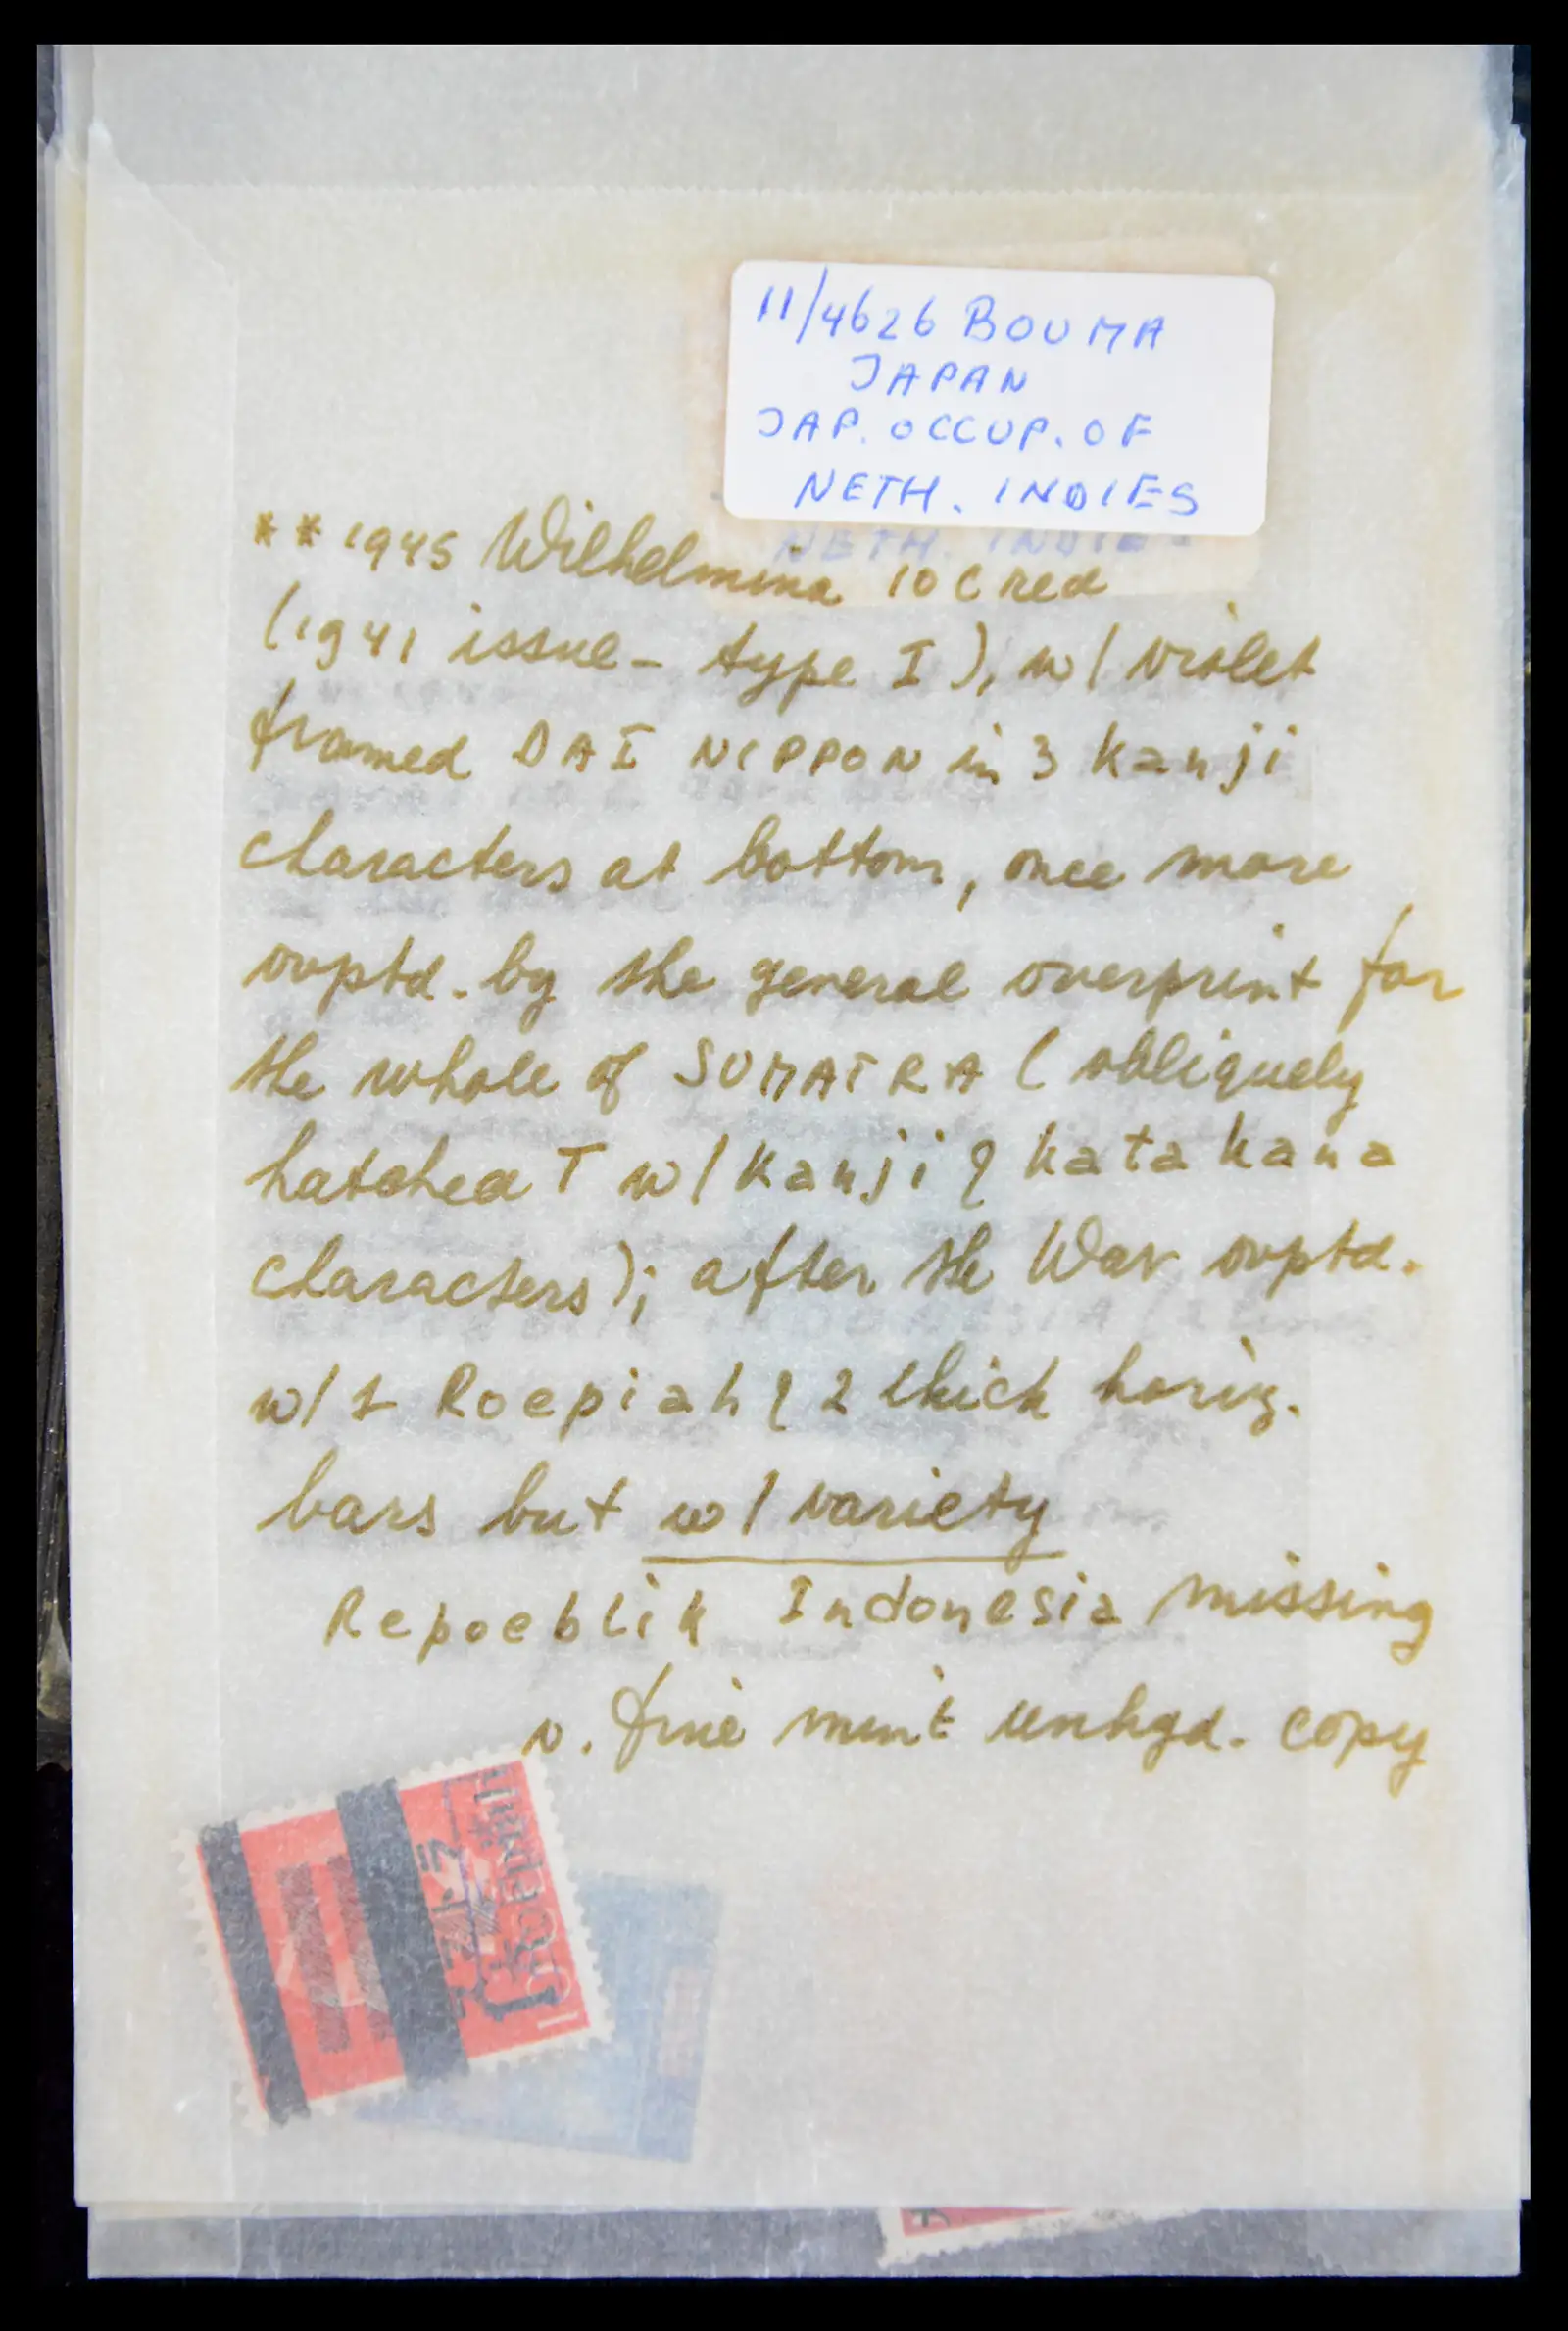 11/4626 BOUMA
JAPAN
JAP. OCCUP. OF
NETH. INDIES
NETH. INDIE
** 1945 Wilhelmina 10 C red
(1941 issue - type I), w/ violet
framed DAI NIPPON in 3 kanji
characters at bottom, once more
ovptd. by the general overprint for
the whole of SUMATRA (obliquely
hatched T w/ kanji & katakana
characters); after the War ovptd.
w/ 1 Roepiah & 2 thick horiz.
bars but w/ variety
Repoeblik Indonesia missing
v. fine mint unhgd. copy
1 Roepiah